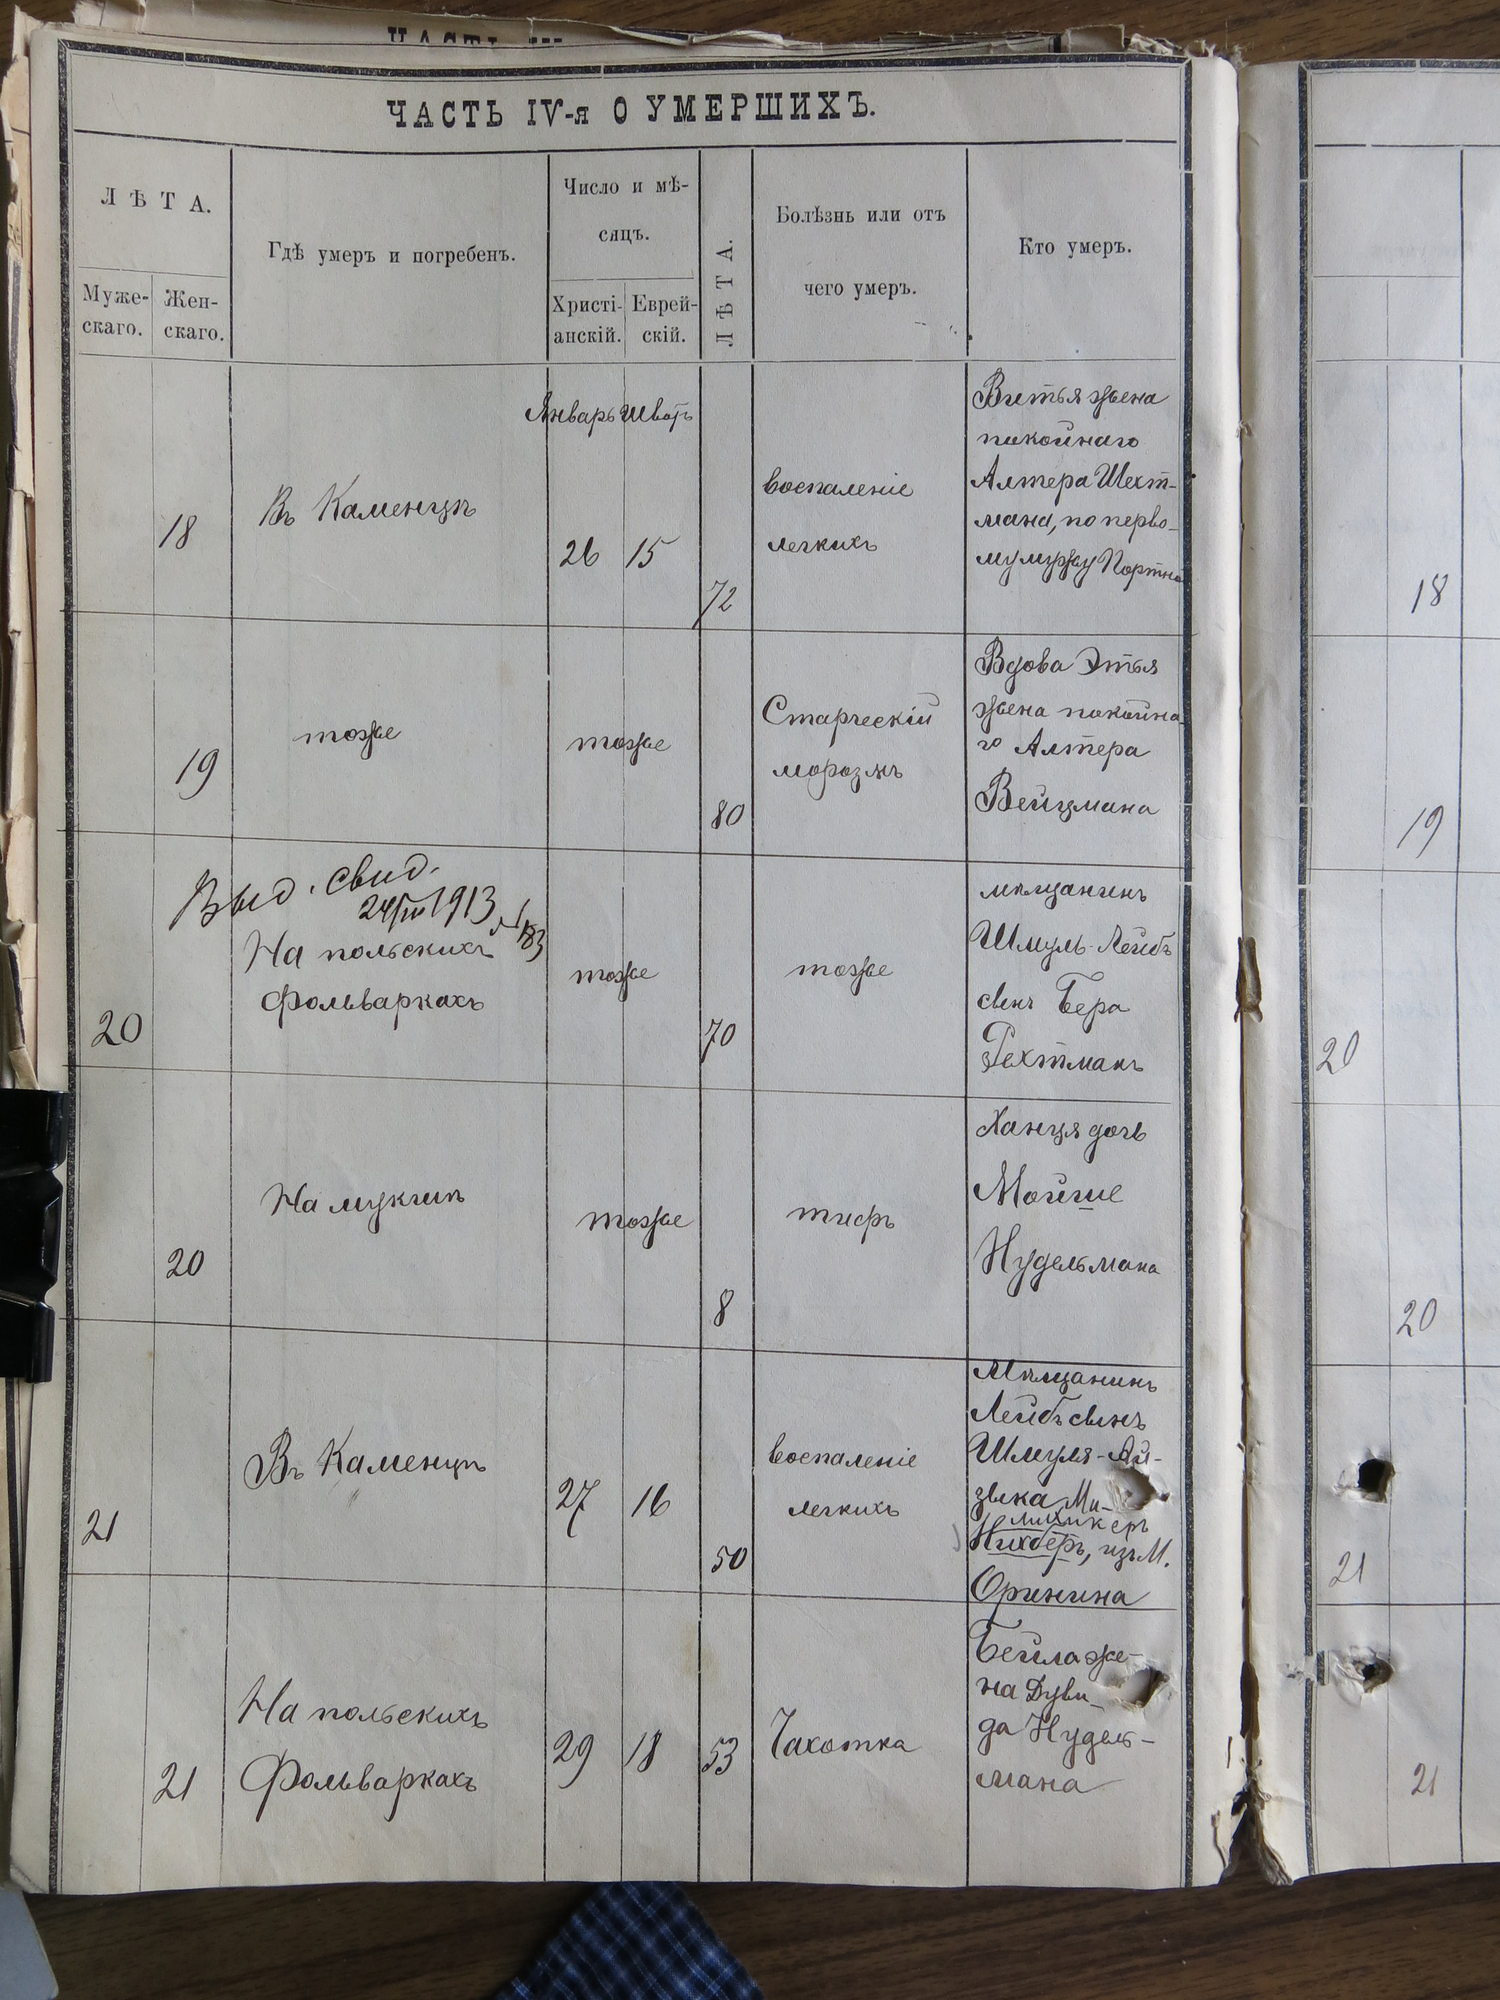 ЧАСТЬ IV-я О УМЕРШИХЪ.
ЛѢТА.
Муже-
скаго.
Жен-
скаго.
Гдѣ умеръ и погребенъ.
Число и мѣ-
сяцъ.
Христі-
анскій.
Еврей-
скій.
ЛѢТА.
Болѣзнь или отъ
чего умеръ.
Кто умеръ.
18
Въ Каменцѣ
Январь Шватъ
26 15
72
воспаленіе
легкихъ
жена
покойнаго
Алтера Шехт-
мана, по перво-
му мужу
19
тоже
тоже
80
Старческій
Вдова Этья
жена покойна-
го Алтера
Вейцмана
20
Выд. свид.
1913
На польскихъ
Фольваркахъ
тоже
70
тоже
мѣщанинъ
Шмуль-Лейбъ
сынъ Бера
20
На мукшѣ
тоже
8
тифъ
Ханця дочь
Мойше
Нудельмана
21
Въ Каменцѣ
27 16
50
воспаленіе
легкихъ
Мѣщанинъ
Лейбъ сынъ
Шмуля-Ай-
зыка
изъ М.
Оринина
21
На польскихъ
Фольваркахъ
29 18
53
Чахотка
Бейла же-
на Дуви-
да Нудель-
мана
18
19
20
20
21
21